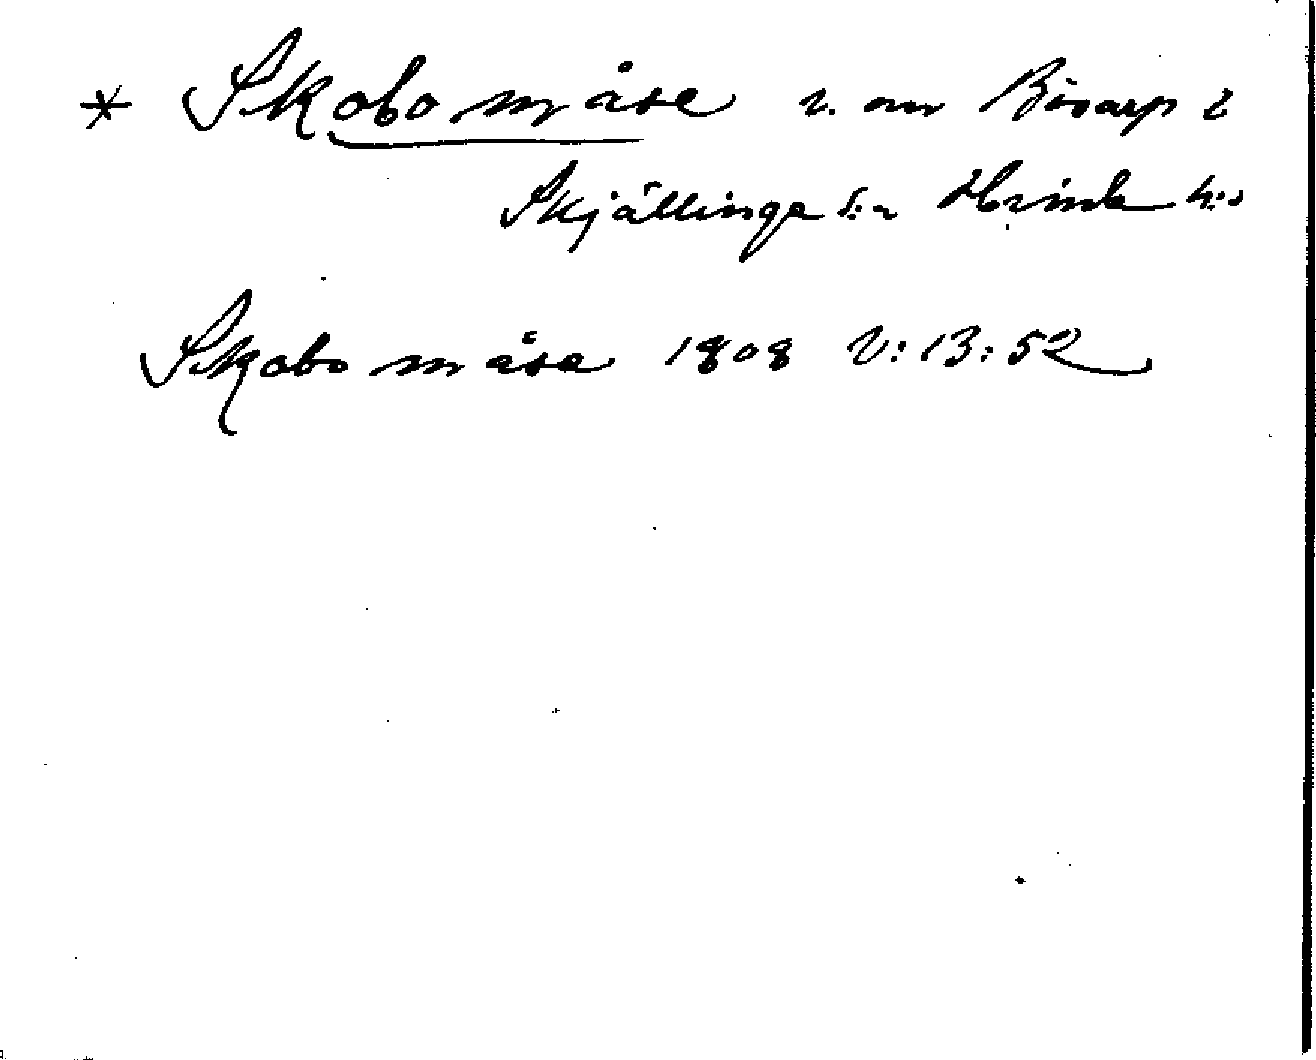 * Skobo måse v. om Bösarp i
Skjällinge s:n Himle h:d
Skobo måse 1808 V:13:52